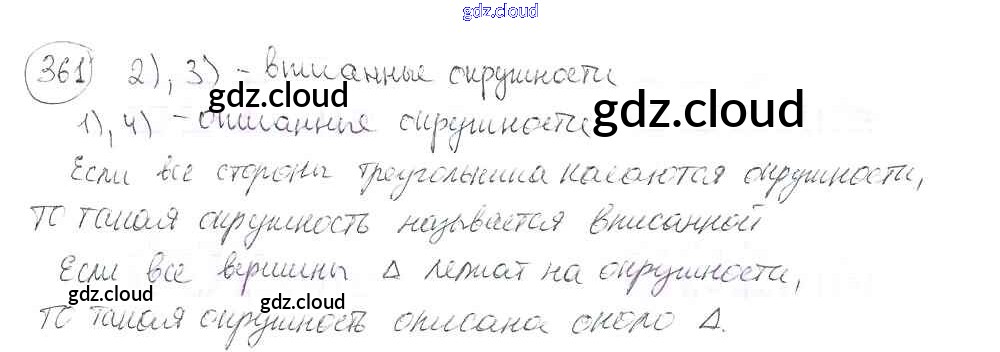 gdz.cloud
361 2), 3) - вписанные окружности
gdz.cloud
1), 4) - описанные окружности
gdz.cloud
Если все стороны треугольника касаются окружности,
то такая окружность называется вписанной
Если все вершины Δ лежат на окружности,
gdz.cloud
gdz.cloud
то такая окружность описана около Δ.